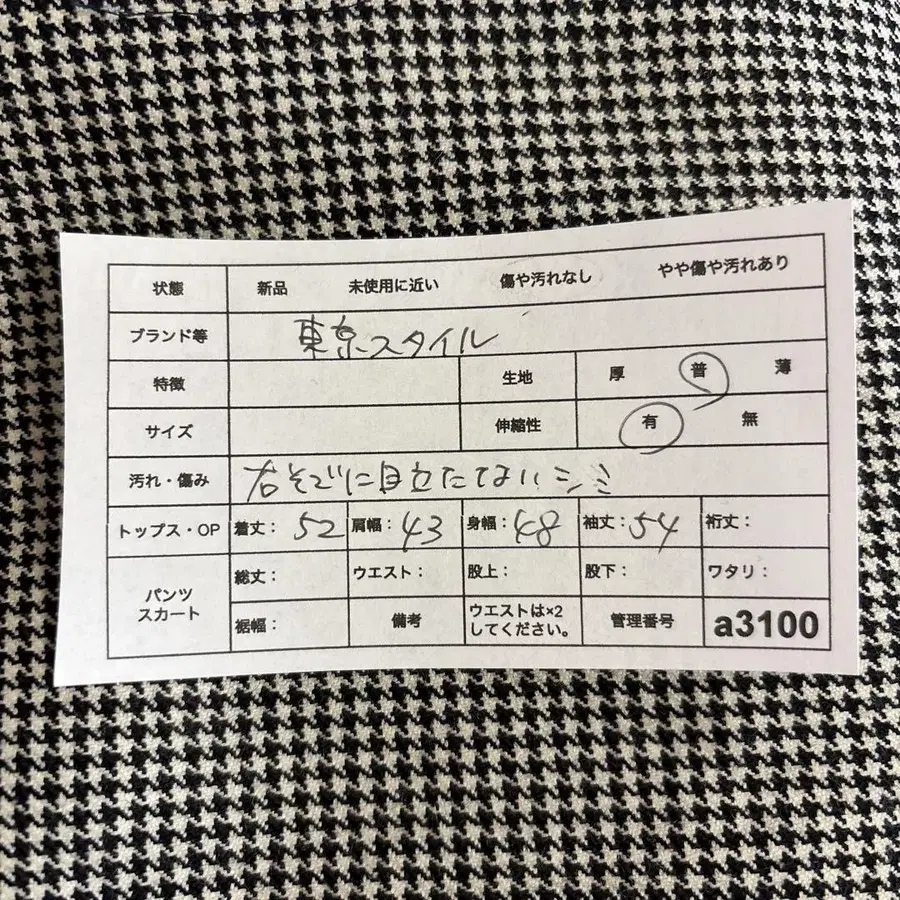 状態 新品 未使用に近い 傷や汚れなし やや傷や汚れあり
ブランド等 東京スタイル
特徴 生地 厚 普 薄
サイズ 伸縮性 有 無
汚れ・傷み 右そでに目立たてないシミ
トップス・OP 着丈: 52 肩幅: 43 身幅: 48 袖丈: 54 裄丈:
パンツ スカート 総丈: ウエスト: 股上: 股下: ワタリ:
裾幅: 備考 ウエストは×2 してください。 管理番号 a3100